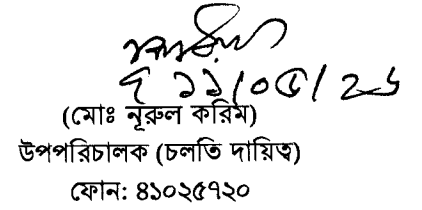 ১১/০৫/২৬
(মোঃ নূরুল করিম)
উপপরিচালক (চলতি দায়িত্ব)
ফোন: ৪১০২৫৭২০